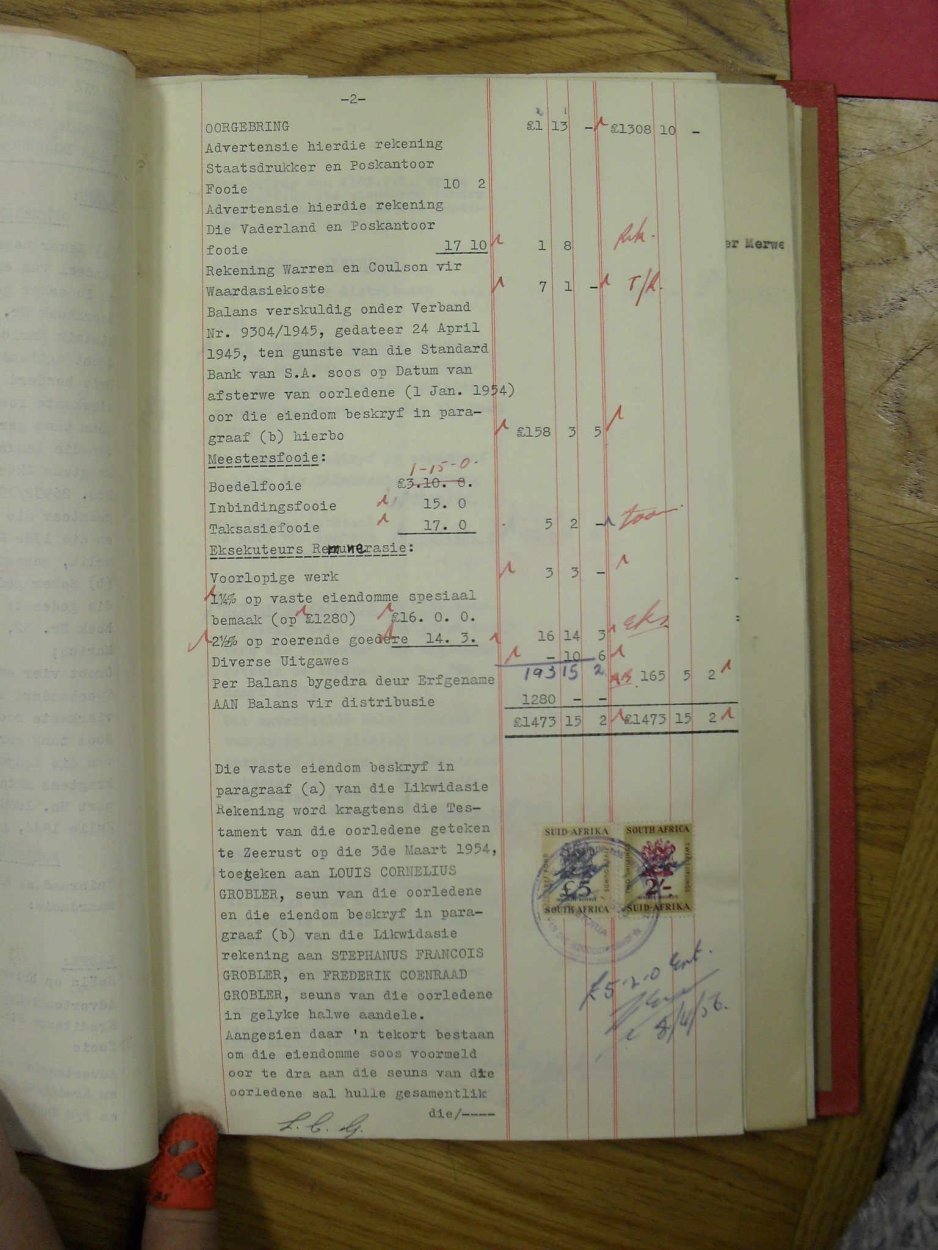 -2-
OORGEBRING £1 13 - £1308 10 -
Advertensie hierdie rekening
Staatsdrukker en Poskantoor
Fooie 10 2
Advertensie hierdie rekening
Die Vaderland en Poskantoor
fooie 17 10 1 8
Rekening Warren en Coulson vir
Waardasiekoste 7 1 - T/R.
Balans verskuldig onder Verband
Nr. 9304/1945, gedateer 24 April
1945, ten gunste van die Standard
Bank van S.A. soos op Datum van
afsterwe van oorledene (1 Jan. 1954)
oor die eiendom beskryf in para-
graaf (b) hierbo £158 3 5
Meestersfooie:
1-15-0.
Boedelfooie £3.10. 0.
Inbindingsfooie 15. 0
Taksasiefooie 17. 0 5 2 -
Eksekuteurs Remunerasie:
Voorlopige werk 3 3 -
1¼% op vaste eiendomme spesiaal
bemaak (op £1280) £16. 0. 0.
2½% op roerende goedere 14. 3. 16 14 3 Eks
Diverse Uitgawes - 10 6
193 15 2
Per Balans bygedra deur Erfgename 165 5 2
AAN Balans vir distribusie 1280 - -
£1473 15 2 £1473 15 2
Die vaste eiendom beskryf in
paragraaf (a) van die Likwidasie
Rekening word kragtens die Tes-
tament van die oorledene geteken
te Zeerust op die 3de Maart 1954,
toegeken aan LOUIS CORNELIUS
GROBLER, seun van die oorledene
en die eiendom beskryf in para-
graaf (b) van die Likwidasie
rekening aan STEPHANUS FRANCOIS
GROBLER, en FREDERIK COENRAAD
GROBLER, seuns van die oorledene
in gelyke halwe aandele.
Aangesien daar 'n tekort bestaan
om die eiendomme soos voormeld
oor te dra aan die seuns van die
oorledene sal hulle gesamentlik
die/----
L. C. G.
SUID-AFRIKA
£5
SOUTH AFRICA
SOUTH AFRICA
2/-
SUID-AFRIKA
£5-2-0 Ent.
8/4/56.
er Merwe